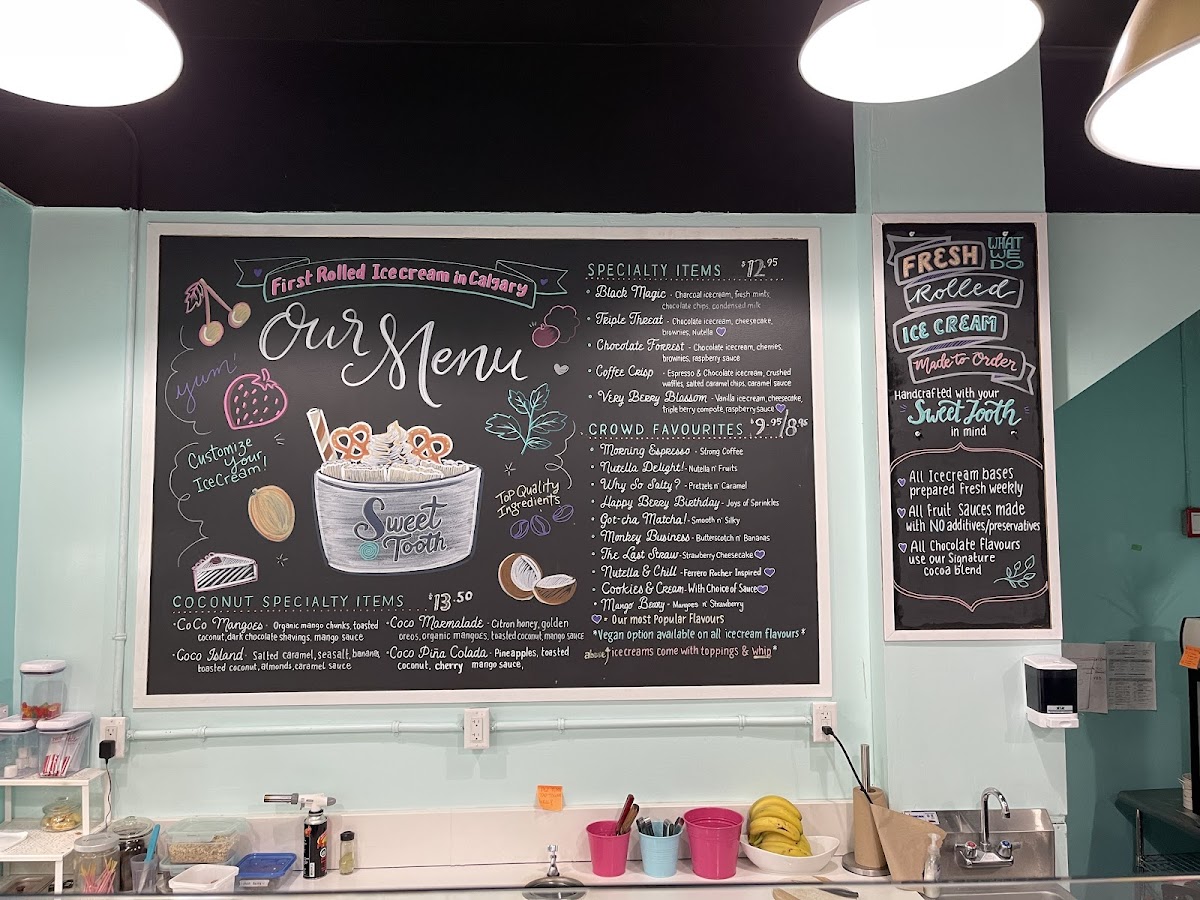 First Rolled Icecream in Calgary
Our Menu
yum!
Customize
your
IceCream!
Sweet
Tooth
Top Quality
Ingredients
COCONUT SPECIALTY ITEMS $13.50
• CoCo Mangoes - Organic mango chunks, toasted
coconut, dark chocolate shavings, mango sauce
• Coco Island - Salted caramel, seasalt, banana,
toasted coconut, almonds, caramel sauce
• Coco Marmalade - Citron honey, golden
oreos, organic mangoes, toasted coconut, mango sauce
• Coco Piña Colada - Pineapples, toasted
coconut, cherry mango sauce,
SPECIALTY ITEMS $12.95
• Black Magic - Charcoal icecream, fresh mints,
chocolate chips, condensed milk
• Triple Threat - Chocolate icecream, cheesecake,
brownies, Nutella
• Chocolate Forrest - Chocolate icecream, cherries,
brownies, raspberry sauce
• Coffee Crisp - Espresso & Chocolate icecream, crushed
waffles, salted caramel chips, caramel sauce
• Very Berry Blossom - Vanilla icecream, cheesecake,
triple berry compote, raspberry sauce
CROWD FAVOURITES $9.95/8.95
• Morning Espresso - Strong Coffee
• Nutella Delight! - Nutella n' Fruits
• Why So Salty? - Pretzels n' Caramel
• Happy Berry Birthday - Joys of Sprinkles
• Got-cha Matcha! - Smooth n' Silky
• Monkey Business - Butterscotch n' Bananas
• The Last Straw - Strawberry Cheesecake
• Nutella & Chill - Ferrero Rocher Inspired
• Cookies & Cream - With Choice of Sauce
• Mango Berry - Mangoes n' Strawberry
= Our most Popular Flavours
*Vegan option available on all icecream flavours*
above icecreams come with toppings & whip*
WHAT
WE
DO
FRESH
Rolled
ICE CREAM
Made to Order
Handcrafted with your
Sweet Tooth
in mind
All Icecream bases
prepared fresh weekly
All Fruit Sauces made
with NO additives/preservatives
All Chocolate Flavours
use our Signature
cocoa blend